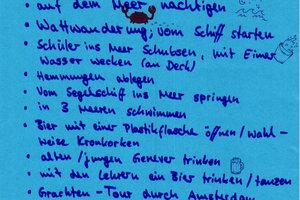 • auf dem Meer nächtigen
• Wattwanderung, vom Schiff starten
• Schüler ins Meer Schubsen, mit Eimer
Wasser wecken (an Deck)
• Hemmungen ablegen
• Vom Segelschiff ins Meer springen
• in 3 Meeren schwimmen
• Bier mit einer Plastikflasche öffnen/Wahl-
weise Kronkorken
• alten/jungen Genever trinken
• mit den Lehrern ein Bier trinken/tanzen
• Grachten-Tour durch Amsterdam